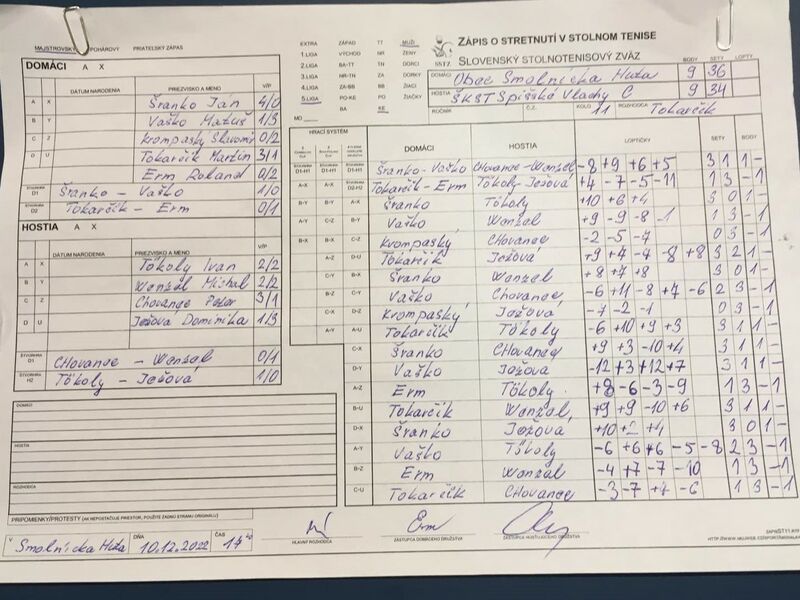 MAJSTROVSKÝ POHÁROVÝ PRIATEĽSKÝ ZÁPAS
DOMÁCI A X
DÁTUM NARODENIA PRIEZVISKO A MENO V/P
A X Šranko Ján 4/0
B Y Vaško Matúš 1/3
C Z Krompaský Slavomír 0/2
D U Tokarčík Martin 3/1
Erm Roland 0/2
ŠTVORHRA D1 Šranko - Vaško 1/0
ŠTVORHRA D2 Tokarčík - Erm 0/1
HOSTIA A X
DÁTUM NARODENIA PRIEZVISKO A MENO V/P
A X Tököly Ivan 2/2
B Y Wenzel Michal 2/2
C Z Chovanec Peter 3/1
D U Ježová Dominika 1/3
ŠTVORHRA CHovanec - Wenzel 0/1
ŠTVORHRA H2 Tököly - Ježová 1/0
DOMÁCI
HOSTIA
ROZHODCA
PRIPOMIENKY/PROTESTY (AK NEPOSTAČUJE PRIESTOR, POUŽITE ZADNÚ STRANU ORIGINÁLU)
V Smolnícka Huta DŇA 10.12.2022 ČAS 17
EXTRA ZÁPAD TT MUŽI
1.LIGA VÝCHOD NR ŽENY
2.LIGA BA-TT TN DORCI
3.LIGA NR-TN ZA DORKY
4.LIGA ZA-BB BB ŽIACI
5.LIGA PO-KE PO ŽIAČKY
BA KE
MO
ZÁPIS O STRETNUTÍ V STOLNOM TENISE
SSTZ SLOVENSKÝ STOLNOTENISOVÝ ZVÄZ
BODY SETY LOPTY
DOMÁCI Obec Smolnícka Huta 9 36
HOSTIA ŠKST Spišské Vlachy C 9 34
ROČNÍK Č.Z. KOLO 11 ROZHODCA Tokarčík
HRACÍ SYSTÉM DOMÁCI HOSTIA LOPTIČKY SETY BODY
Šranko-Vaško CHovanec-Wenzel -8 +9 +6 +5 3 1 1 -
Tokarčík-Erm Tököly-Ježová +4 -7 -5 -11 1 3 - 1
Šranko Tököly +10 +6 +4 3 0 1 -
Vaško Wenzel +9 -9 -8 -1 1 3 - 1
Krompaský CHovanec -2 -5 -7 0 3 - 1
Tokarčík Ježová +9 +7 -4 -8 +8 3 2 1 -
Šranko Wenzel +8 +7 +8 3 0 1 -
Vaško Chovanec -6 +11 -8 +7 -6 2 3 - 1
Krompaský Ježová -7 -2 -1 0 3 - 1
Tokarčík Tököly -6 +10 +9 +3 3 1 1 -
C-X Šranko CHovanec +9 +3 -10 +4 3 1 1 -
D-Y Vaško Ježová -12 +3 +12 +7 3 1 1 -
A-Z Erm Tököly +8 -6 -3 -9 1 3 - 1
B-U Tokarčík Wenzel +9 +9 -10 +6 3 1 1 -
D-X Šranko Ježová +10 +2 +4 3 0 1 -
A-Y Vaško Tököly -6 +6 +6 -5 -8 2 3 - 1
B-Z Erm Wenzel -4 +7 -7 -10 1 3 - 1
C-U Tokarčík CHovanec -3 -7 +7 -6 1 3 - 1
HLAVNÝ ROZHODCA ZÁSTUPCA DOMÁCEHO DRUŽSTVA ZÁSTUPCA HOSŤUJÚCEHO DRUŽSTVA
Erm